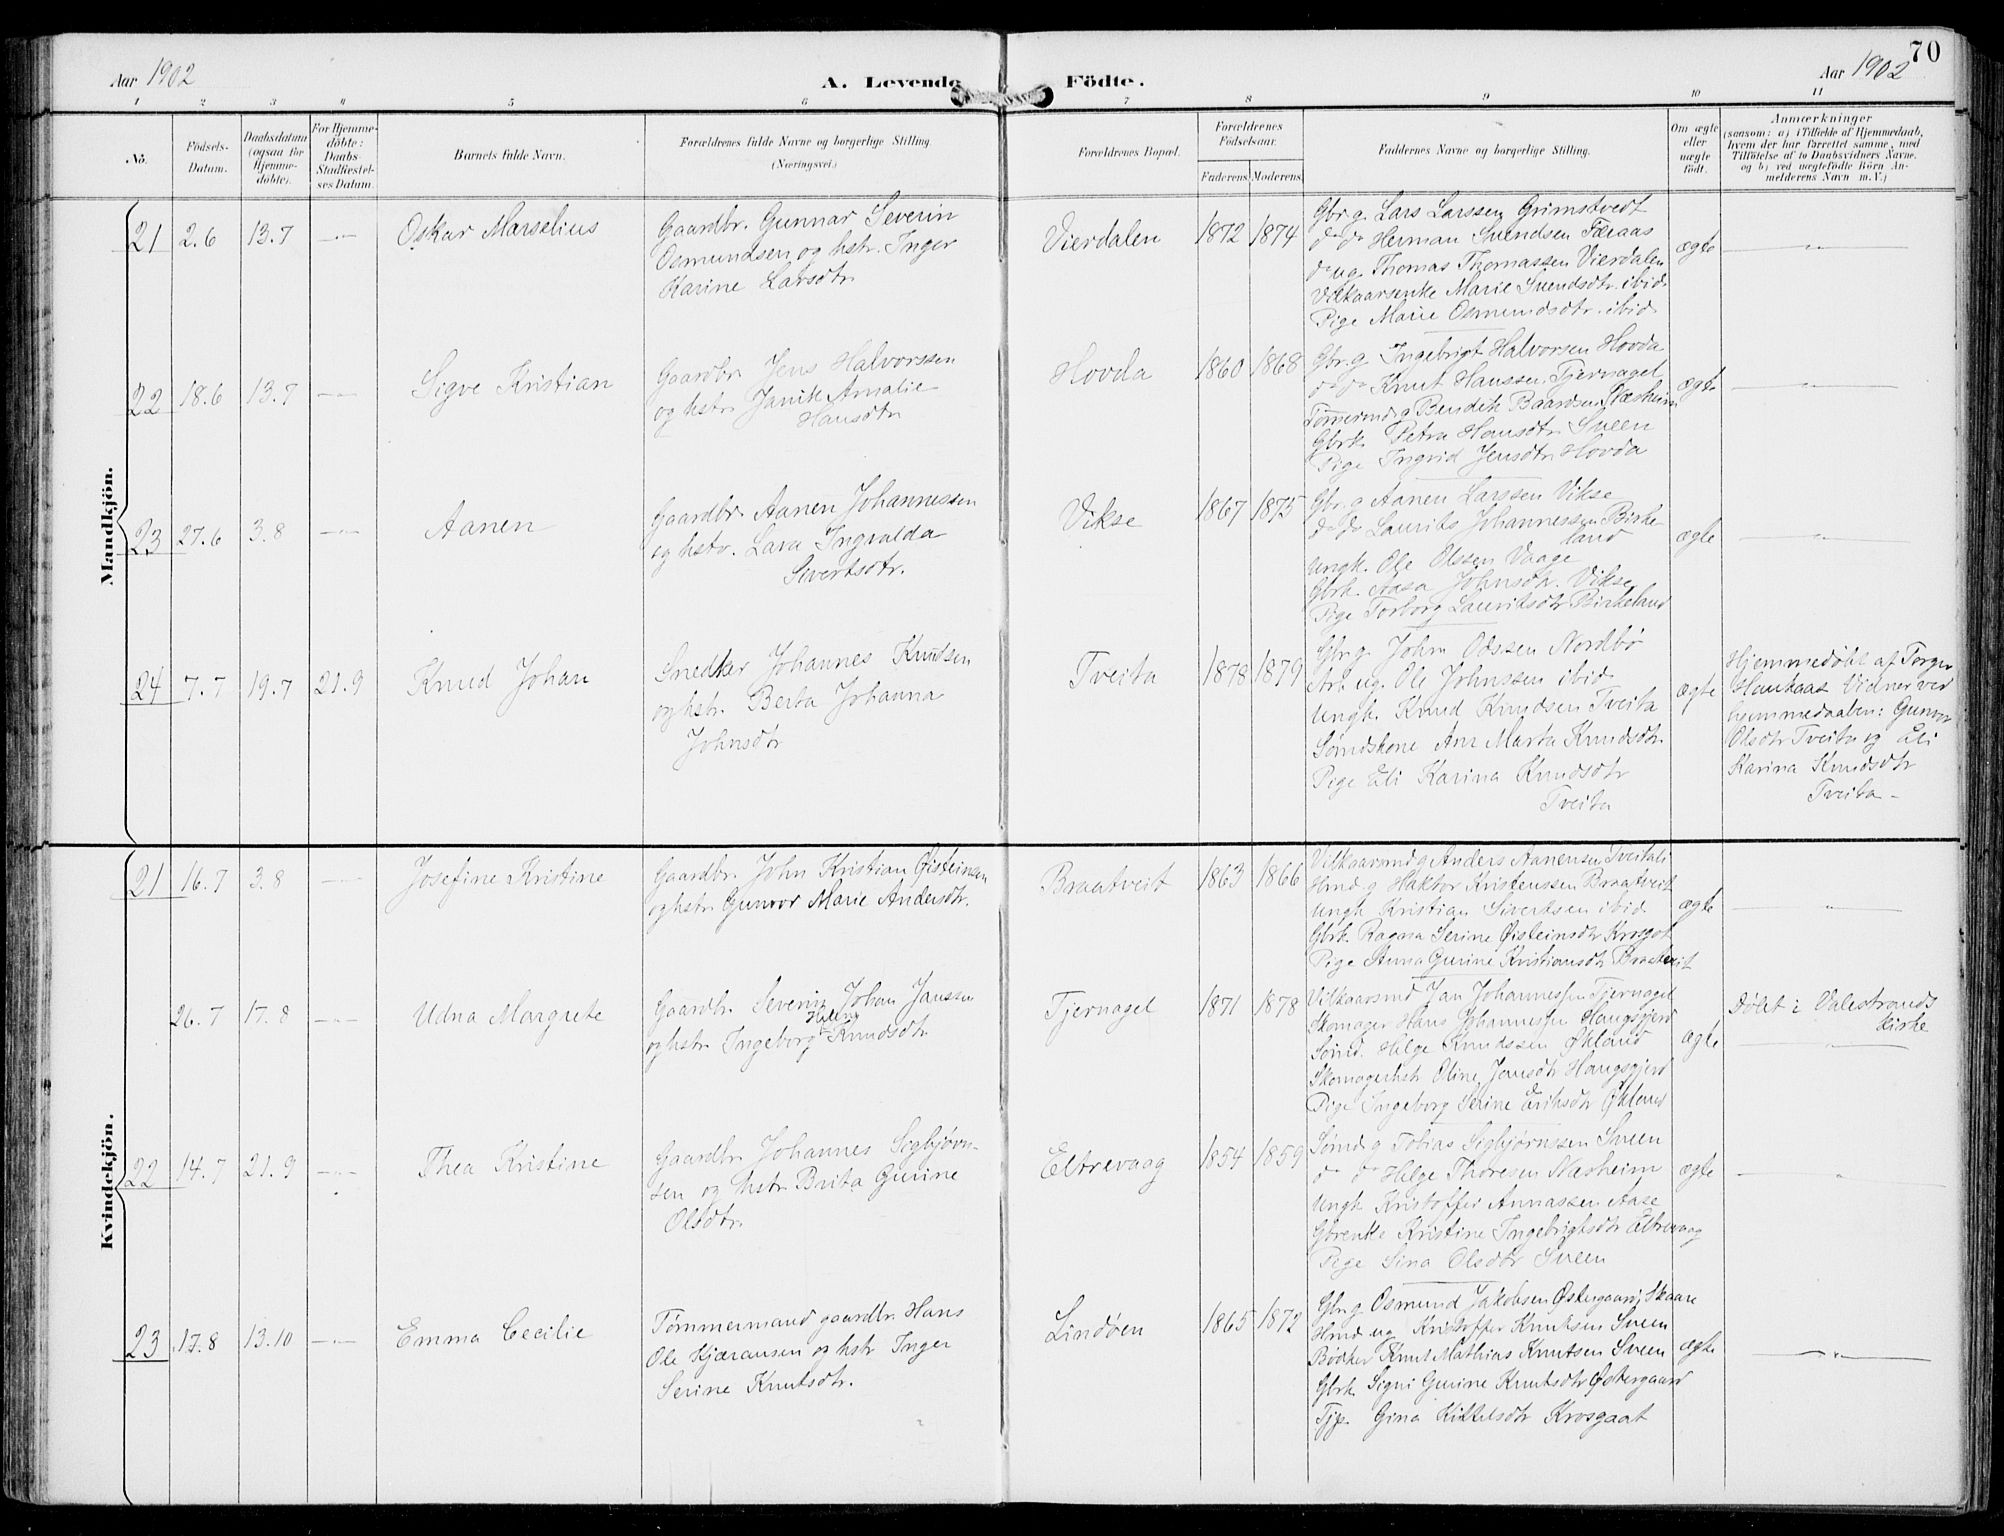 70
Aar 1902
A. Levende Födte.
Aar 1902
1 2 3 4 5 6 7 8 9 10 11
No.
Födsels-Datum.
Daabsdatum (ogsaa for Hjemme-döbte).
For Hjemme-döbte: Daabs-Stadfæstel-ses Datum.
Barnets fulde Navn.
Forældrenes fulde Navne og borgerlige Stilling.
(Næringsvei.)
Forældrenes Bopæl.
Forældrenes Födselsaar.
Faderens Moderens
Faddernes Navne og borgerlige Stilling.
Om ægte eller uægte födt.
Anmærkninger
(saasom: a) i Tilfælde af Hjemmedaab,
hvem der har forrettet samme, med
Tilföielse af to Daabsvidners Navne,
og b) ved uægtefödte Börn An-
melderens Navn m. V.)
Mandkjön.
21 2.6 13.7 Oskar Marselius
Gaardbr. Gunnar Severin
Osmundsen og hstr. Inger
Karine Larsdtr.
Vierdalen 1872 1874
Gbr. g. Lars Larssen Grimstvedt
do do Herman Svendsen Færaas
do ug. Thomas Thomassen Vierdalen
Vilkaarsenke Marie Svendsdtr. ibid.
Pige Marie Osmundsdtr. ibid.
ægte
22 18.6 13.7 Sigve Kristian
Gaardbr. Jens Halvorssen
og hstr. Janik Amalie
Hansdtr.
Hovda 1860 1868
Gbr. g. Ingebrigt Halvorsen Hovda
do do Knut Hanssen Tjernagel
Tømmermd. g. Bendik Baardsen Næsheim
Gbrk. Petra Hansdtr. Sveen
Pige Ingrid Jensdtr. Hovda
ægte
23 27.6 3.8 Aanen
Gaardbr. Aanen Johannessen
og hstr. Lava Ingvalda
Sivertsdtr.
Vikse 1867 1875
Gbr. g. Aanen Larssen Vikse
do do Laurits Johannessen Birke-
land
Ungk. Ole Olssen Vaage
Gbrk. Aasa Johnsdtr. Vikse
Pige Torborg Lauritsdtr Birkeland
ægte
24 7.7 19.7 21.9 Knud Johan
Snedker Johannes Knutsen
og hstr. Berta Johanna
Johnsdtr
Tveita 1878 1879
Gbr. g. John Odssen Nordbø
Arb. ug. Ole Johnssen ibid.
Ungk. Knud Knudsen Tveita
Sømdskone Ann Marta Knudsdtr.
Pige Eli Karina Knudsdtr
Tveita
ægte
Hjemmedøbt af Torger
Haukaas Vidner ved
hjemmedaaben: Gunvor
Olsdtr Tveita og Eli
Karina Knudsdtr
Tveita -
Kvindekjön.
21 16.7 3.8 Josefine Kristine
Gaardbr. John Kristian Øisteinsen
og hstr. Gunvor Marie Andersdtr.
Braatveit 1863 1866
Vilkaarsmd g Anders Aanensen Tveitali
Hmd. g Haktor Kristenssen Braatveit
Ungk Kristian Sivertsen ibid.
Gbrk. Ragna Serine Øisteinsdtr Krosgat
Pige Anna Gurine Kristiansdtr Braatveit
ægte
26.7 17.8 Udna Margrete
Gaardbr. Severin Johan Janssen
og hstr. Ingeborg Helene Knudsdtr.
Tjernagel 1871 1878
Vilkaarsmd Jan Johannessen Tjernagel
Skomager Hans Johannessen Haugsgjerd
Sømd. Helge Knudssen Økland
Skomagerhstr Oline Jansdtr Haugsgjerd
Pige Ingeborg Serine Eriksdtr Økland
ægte
Døbt i Valestrands
kirke
22 14.7 21.9 Thea Kristine
Gaardbr. Johannes Sigbjørn-
sen og hstr. Brita Gurine
Olsdtr.
Eltrevaag 1854 1859
Sømd. g Tobias Sigbjørnssen Sveen
do do Helge Thoresen Næsheim
Ungk. Kristoffer Annassen Aase
Gbrenke Kristine Ingebrigtsdtr Eltrevaag
Pige Sina Olsdtr Sveen
ægte
23 17.8 13.10 Emma Cecilie
Tømmermand gaardbr. Hans
Ole Kjæransen og hstr Inger
Serine Knutsdtr.
Lindøen 1865 1872
Gbr. g. Osmund Jakobsen Østergaard, Skaare
Hmd. ug Kristoffer Knutsen Sveen
Bødker Knut Mathias Knutsen Sveen
Gbrk. Signi Gurine Knutsdtr Østergaard
Tjp. Gina Kittelsdtr Krosgaat
ægte